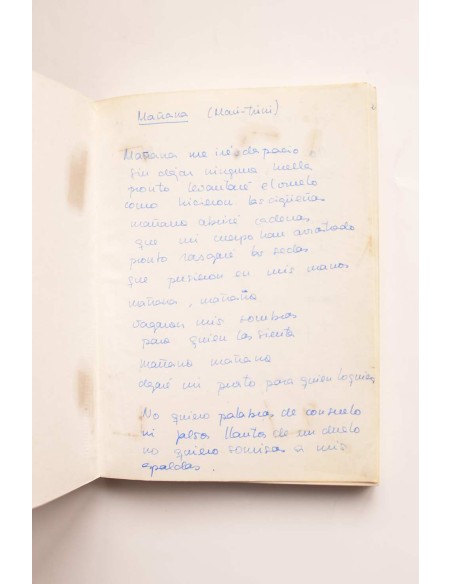 Mañana (Mari-trini)
Mañana me iré despacio
sin dejar ninguna huella
pronto levantaré el vuelo
como hicieron las cigüeñas
mañana abriré cadenas
que mi cuerpo han arrastrado
pronto rasgaré las sedas
que pusieron en mis manos
mañana, mañana
vagaran mis sombras
para quien las sienta
mañana mañana
dejaré mi plato para quien lo quiera
No quiero palabras de consuelo
ni falsos llantos de un duelo
no quiero sonrisas a mis
espaldas.